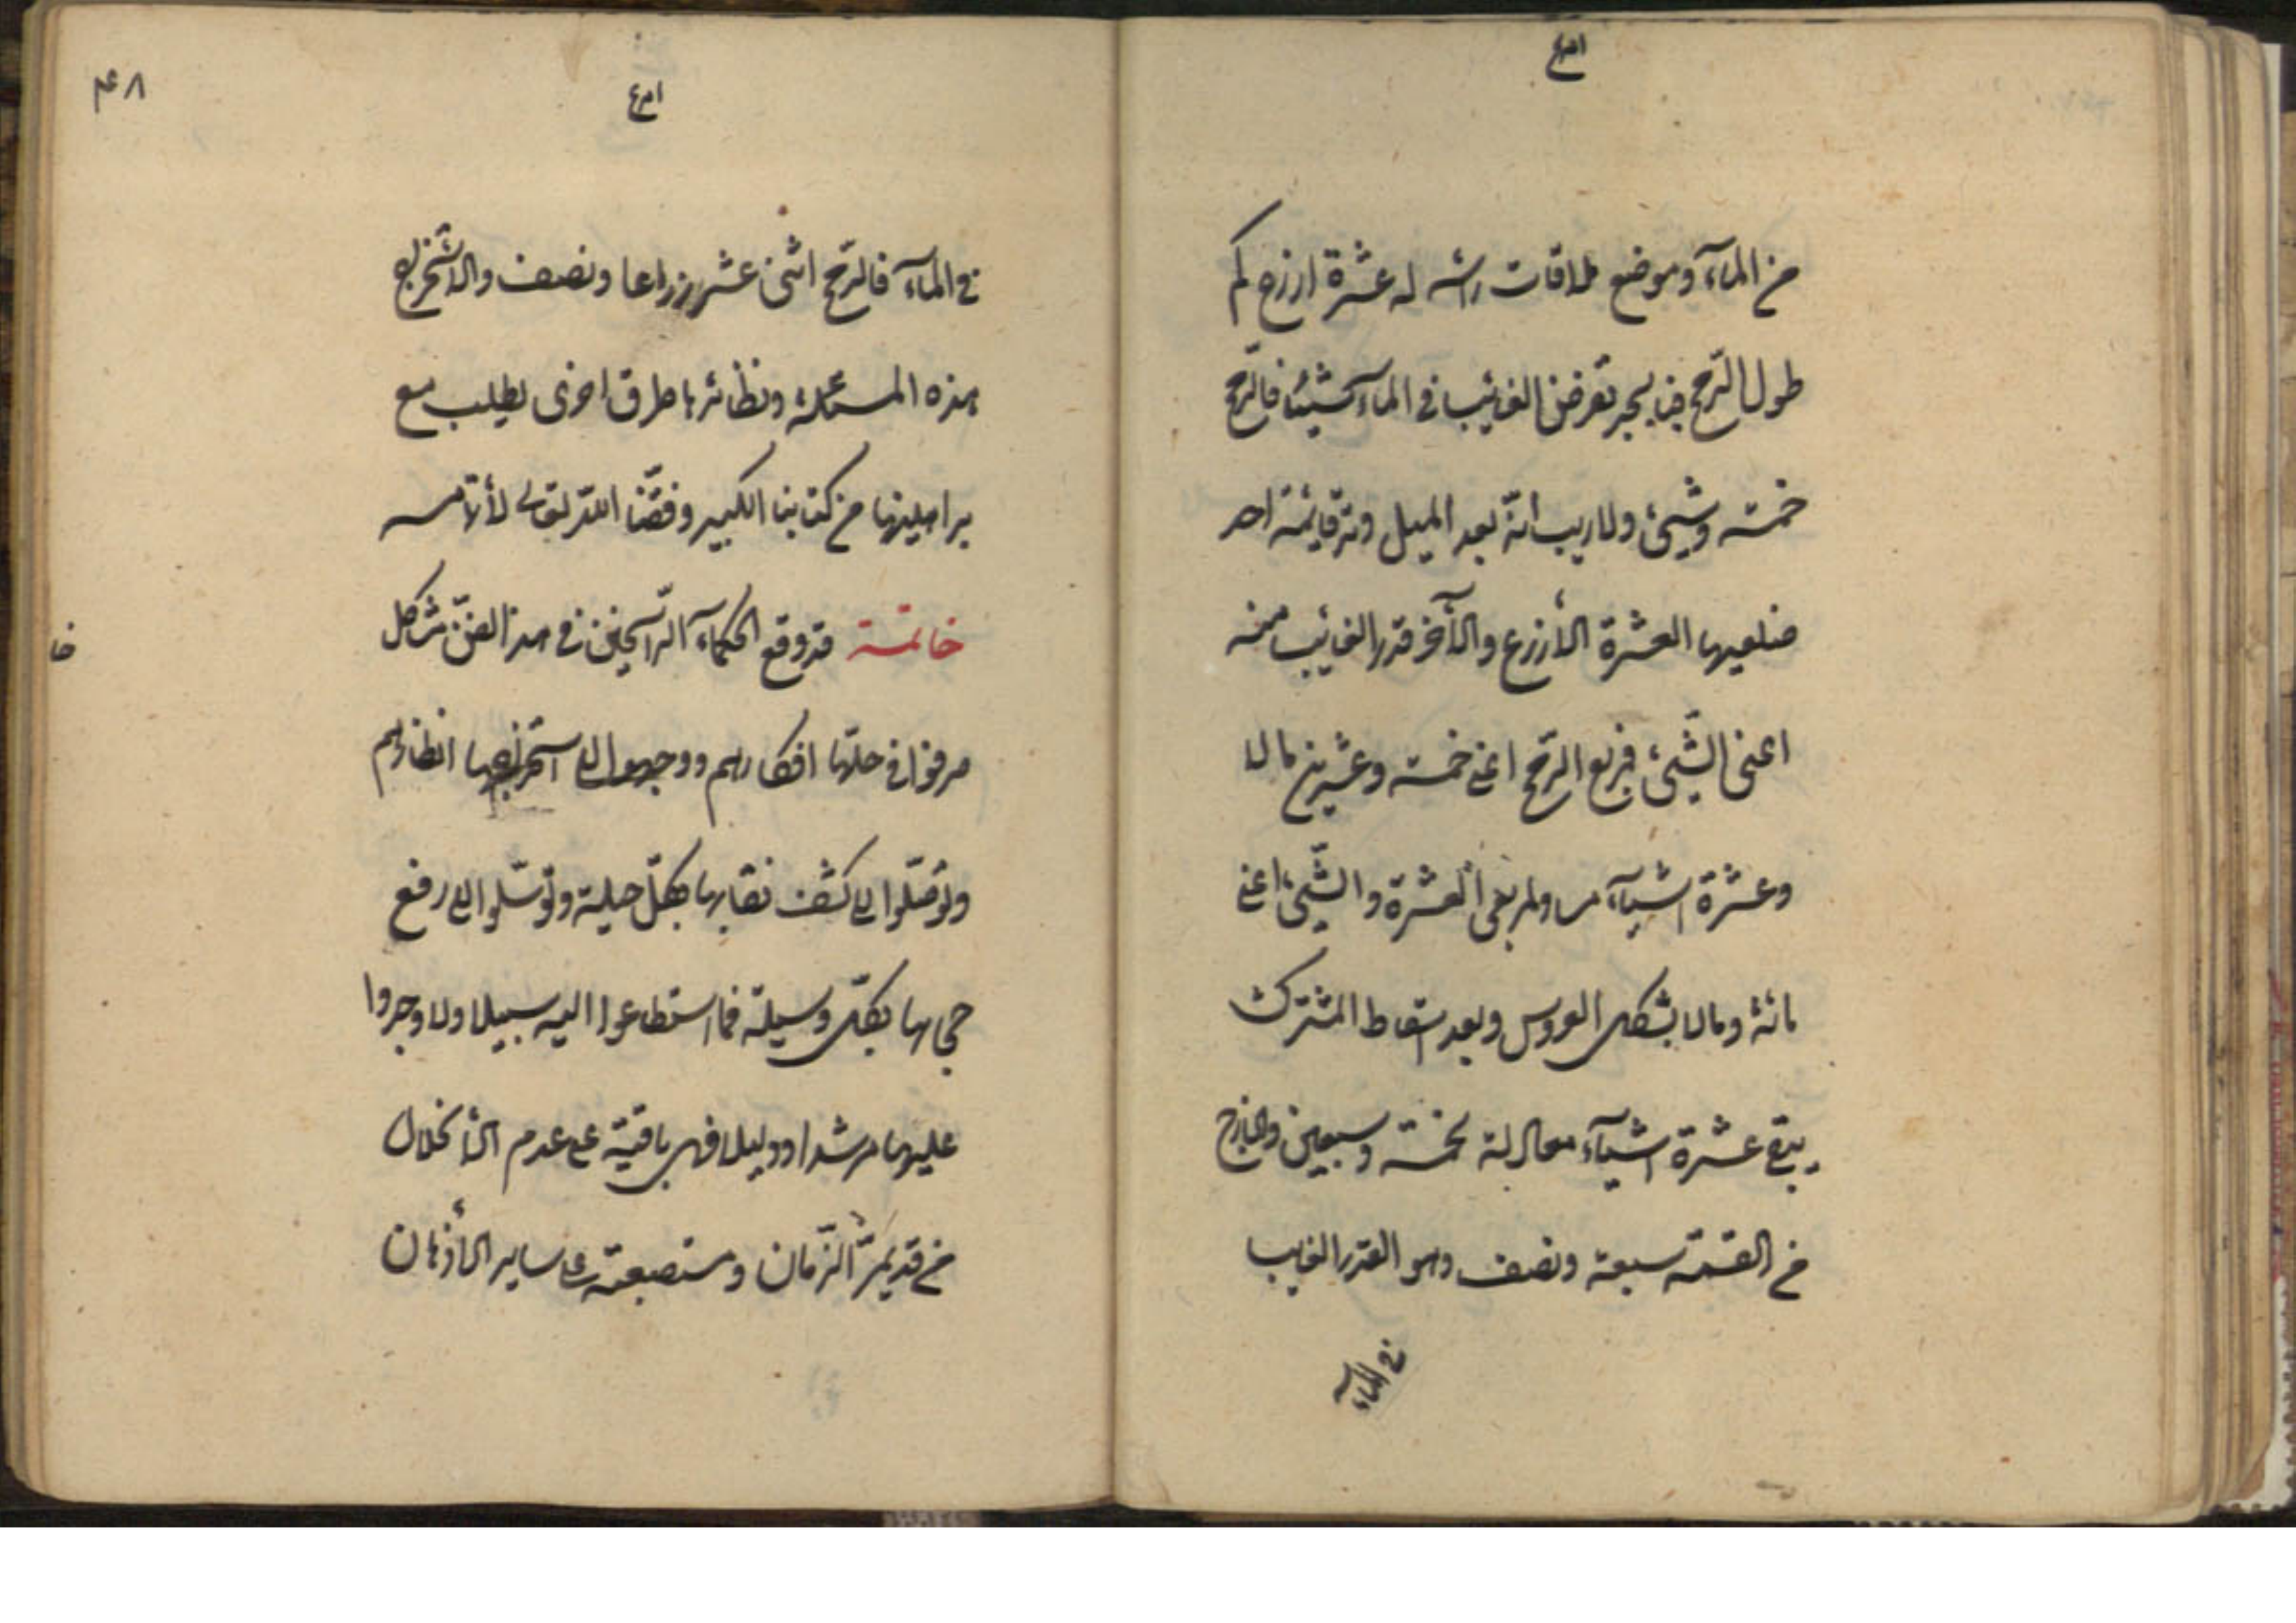 من المآء وموضع ملاقات راسه له عشرة ازرع كم
طول الرّمح فبالجبر تفرض الغائيب فى المآء شيئا فالرّمح
خمسة وشيئ ولاريب انّه بعد الميل وتر قائمة احد
ضلعيها العشرة الأزرع والأخر قدر الغائيب منه
اعنى الشّيئ فربع الرّمح اعنى خمسة وعشرين مالا
وعشرة اشيآء مساو لمربعى العشرة والشّيئ اعنى
مائة ومالا بشكل العروس وبعد اسقاط المشترك
يبقى عشرة اشيآء معادلة لخمسة وسبعين والخارج
من القسمة سبعة ونصف وهو القدر الغايب
فى المآء
۴۸
فى المآء فالرّمح اثنى عشر زراعا ونصف ولاستخراج
هذه المسئلة ونظائرها طرق اخرى يطلب مع
براهينها من كتابنا الكبير وفقّنا الله تعالى لأتمامه
خاتمة قد وقع للحكمآء الرّاسخين فى هذا الفنّ مسائل
صرفوا فى حلّها افكارهم ووجهوا الى استخراجها انظارهم
وتوصّلوا الى كشف نقابها بكلّ حيلة وتوسّلوا الى رفع
حجابها بكلّ وسيلة فما استطاعوا اليه سبيلا ولا وجدوا
عليها مرشدا ودليلا فهى باقية على عدم الأنحلال
من قديم الزّمان ومستصعبة على ساير الأذهان
خا